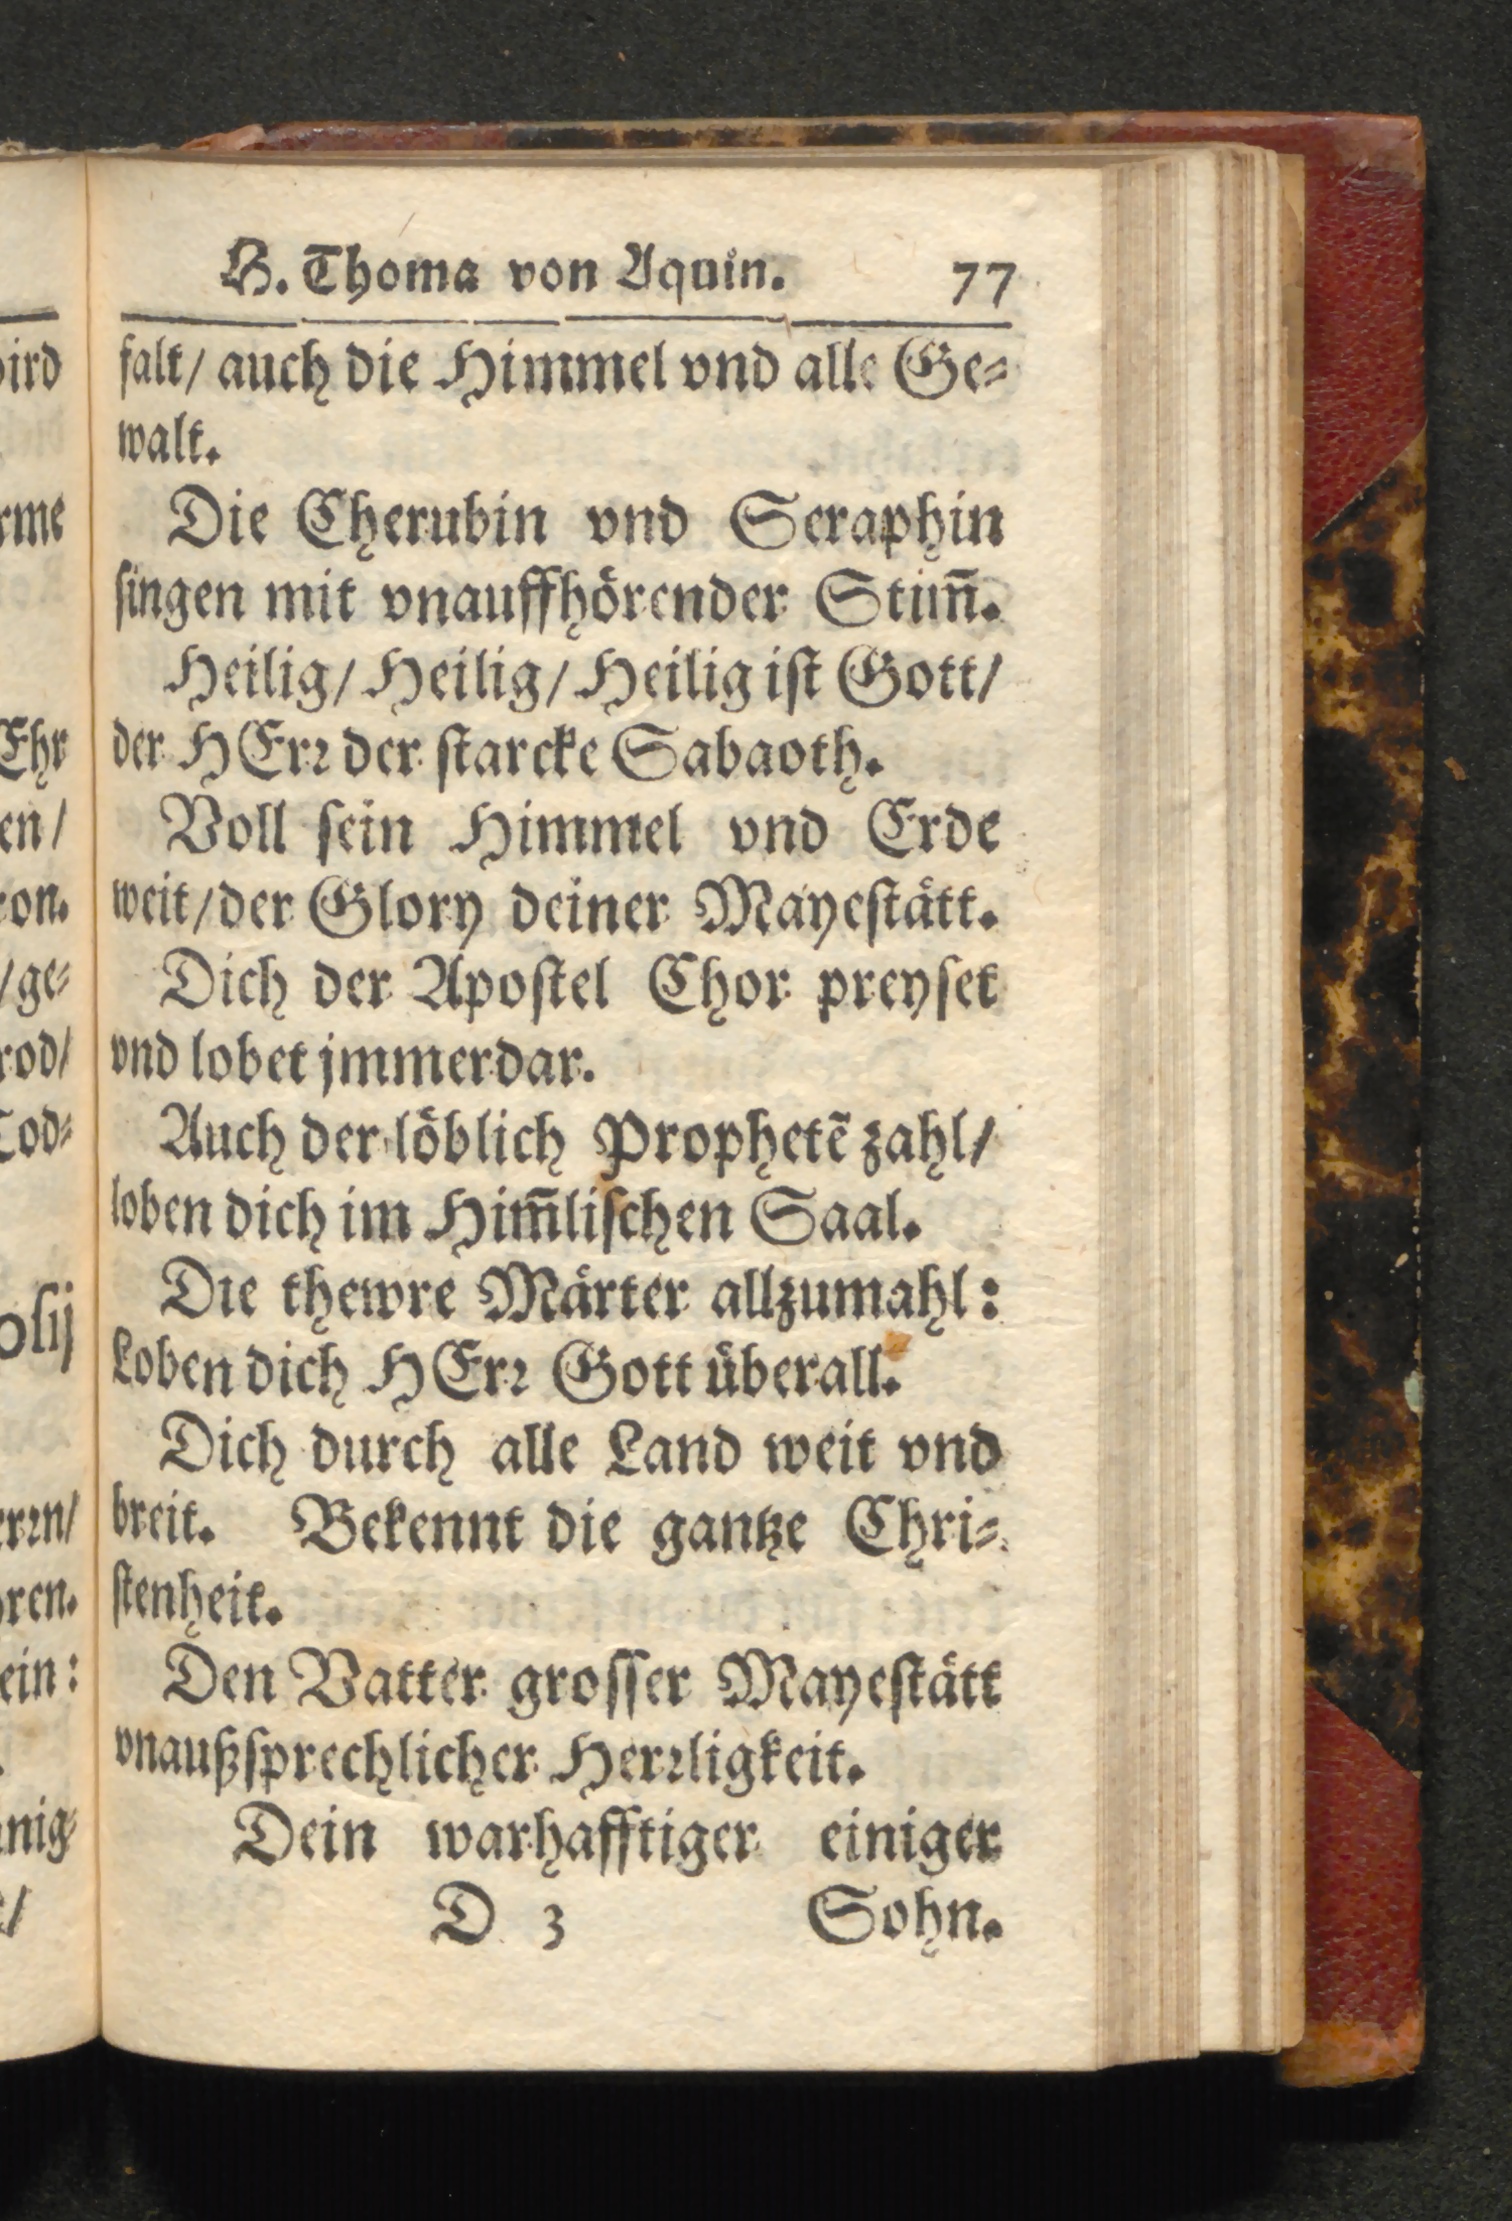 H. Thoma von Aquin. 77
falt/ auch die Himmel vnd alle Ge-
walt.
Die Cherubin vnd Seraphin
singen mit vnauffhörender Stim̄.
Heilig/ Heilig/ Heilig ist Gott/
der HErꝛ der starcke Sabaoth.
Voll sein Himmel vnd Erde
weit/ der Glory deiner Mayestätt.
Dich der Apostel Chor preyset
vnd lobet jmmerdar.
Auch der löblich Prophetē zahl/
loben dich im Him̄lischen Saal.
Die thewre Märter allzumahl:
Loben dich HErꝛ Gott überall.
Dich durch alle Land weit vnd
breit. Bekennt die gantze Chri-
stenheit.
Den Vatter grosser Mayestätt
vnaußsprechlicher Herꝛligkeit.
Dein warhafftiger einiger
D 3 Sohn.